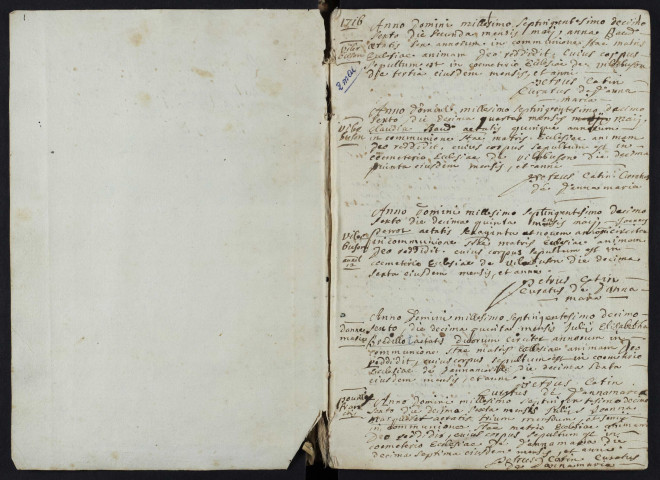 1
1716
Anno Domini millesimo septingentesimo decimo
sexto die secunda mensis maij anna Baud
ætatis sex annorum in communione stæ matris
Eclesiæ animam deo reddidit, Cuius corpus
sepultum est in cemeterio Eclesiæ de
die tertia eiusdem mensis, et anni
2 mai
petrus Catin
Curatus de danna
maria
Anno Domini millesimo septingentesimo decimo
sexto die decima quarta mensis maij
Claudia Baud ætatis quinque annorum
in communione stæ matris Eclesiæ animam
deo reddidit, cuius corpus sepultum est in
cemeterio Eclesiæ de die decima
quinta eiusdem mensis, et anni
petrus Catin
de dannamaria
Anno Domini millesimo septingentesimo decimo
sexto die decima quinta mensis maij
ætatis et novem
in communione stæ matris Eclesiæ animam
deo reddidit. cuius corpus sepultum est in
cemeterio Eclesiæ de die decima
sexta eiusdem mensis, et anni
petrus Catin
curatus de danna
maria
danna
maria
Anno Domini millesimo septingentesimo decimo
sexto die decima quinta mensis Julij Elizabetha
ætatis duorum circiter annorum in
communione stæ matris Eclesiæ animam deo
reddidit, cuius corpus sepultum est in cemeterio
Eclesiæ de dannamaria die decima sexta
eiusdem mensis, et anni
petrus Catin
Curatus de dannamaria
Anno Domini millesimo septingentesimo decimo
sexto die decima sexta mensis Julij Joanna
ætatis trium mensium
in communione stæ matris Eclesiæ animam
deo reddidit, cuius corpus sepultum est in
cemeterio Eclesiæ de dannamaria die
decima septima eiusdem mensis, et anni
petrus Catin Curatus
de dannamaria